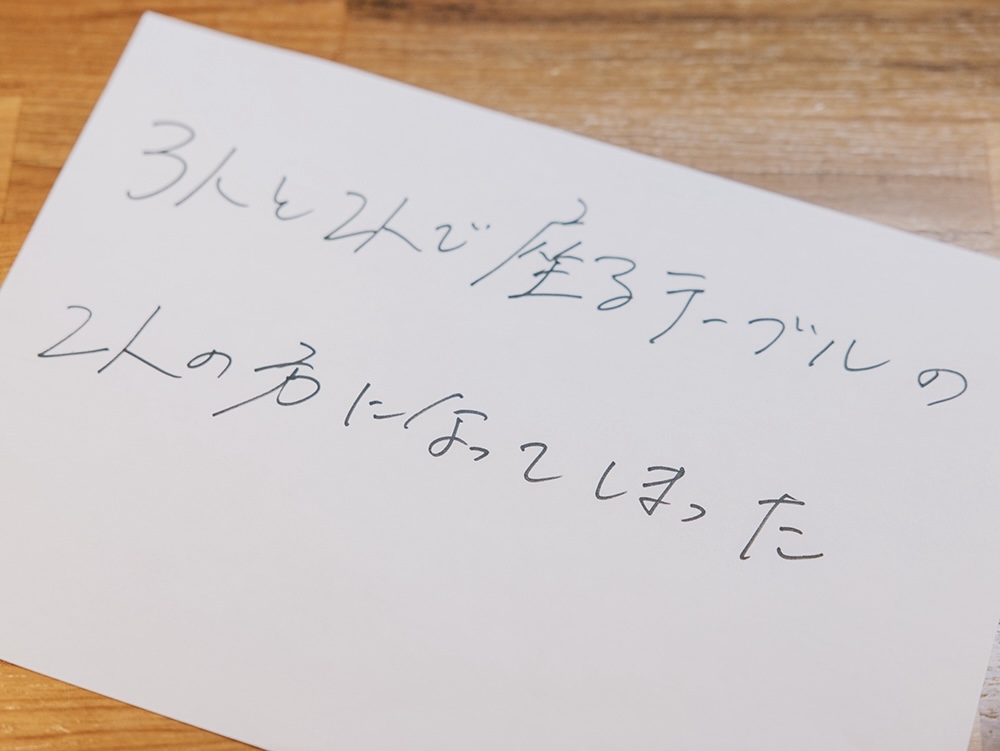 3人と2人で座るテーブルの
2人の方になってしまった